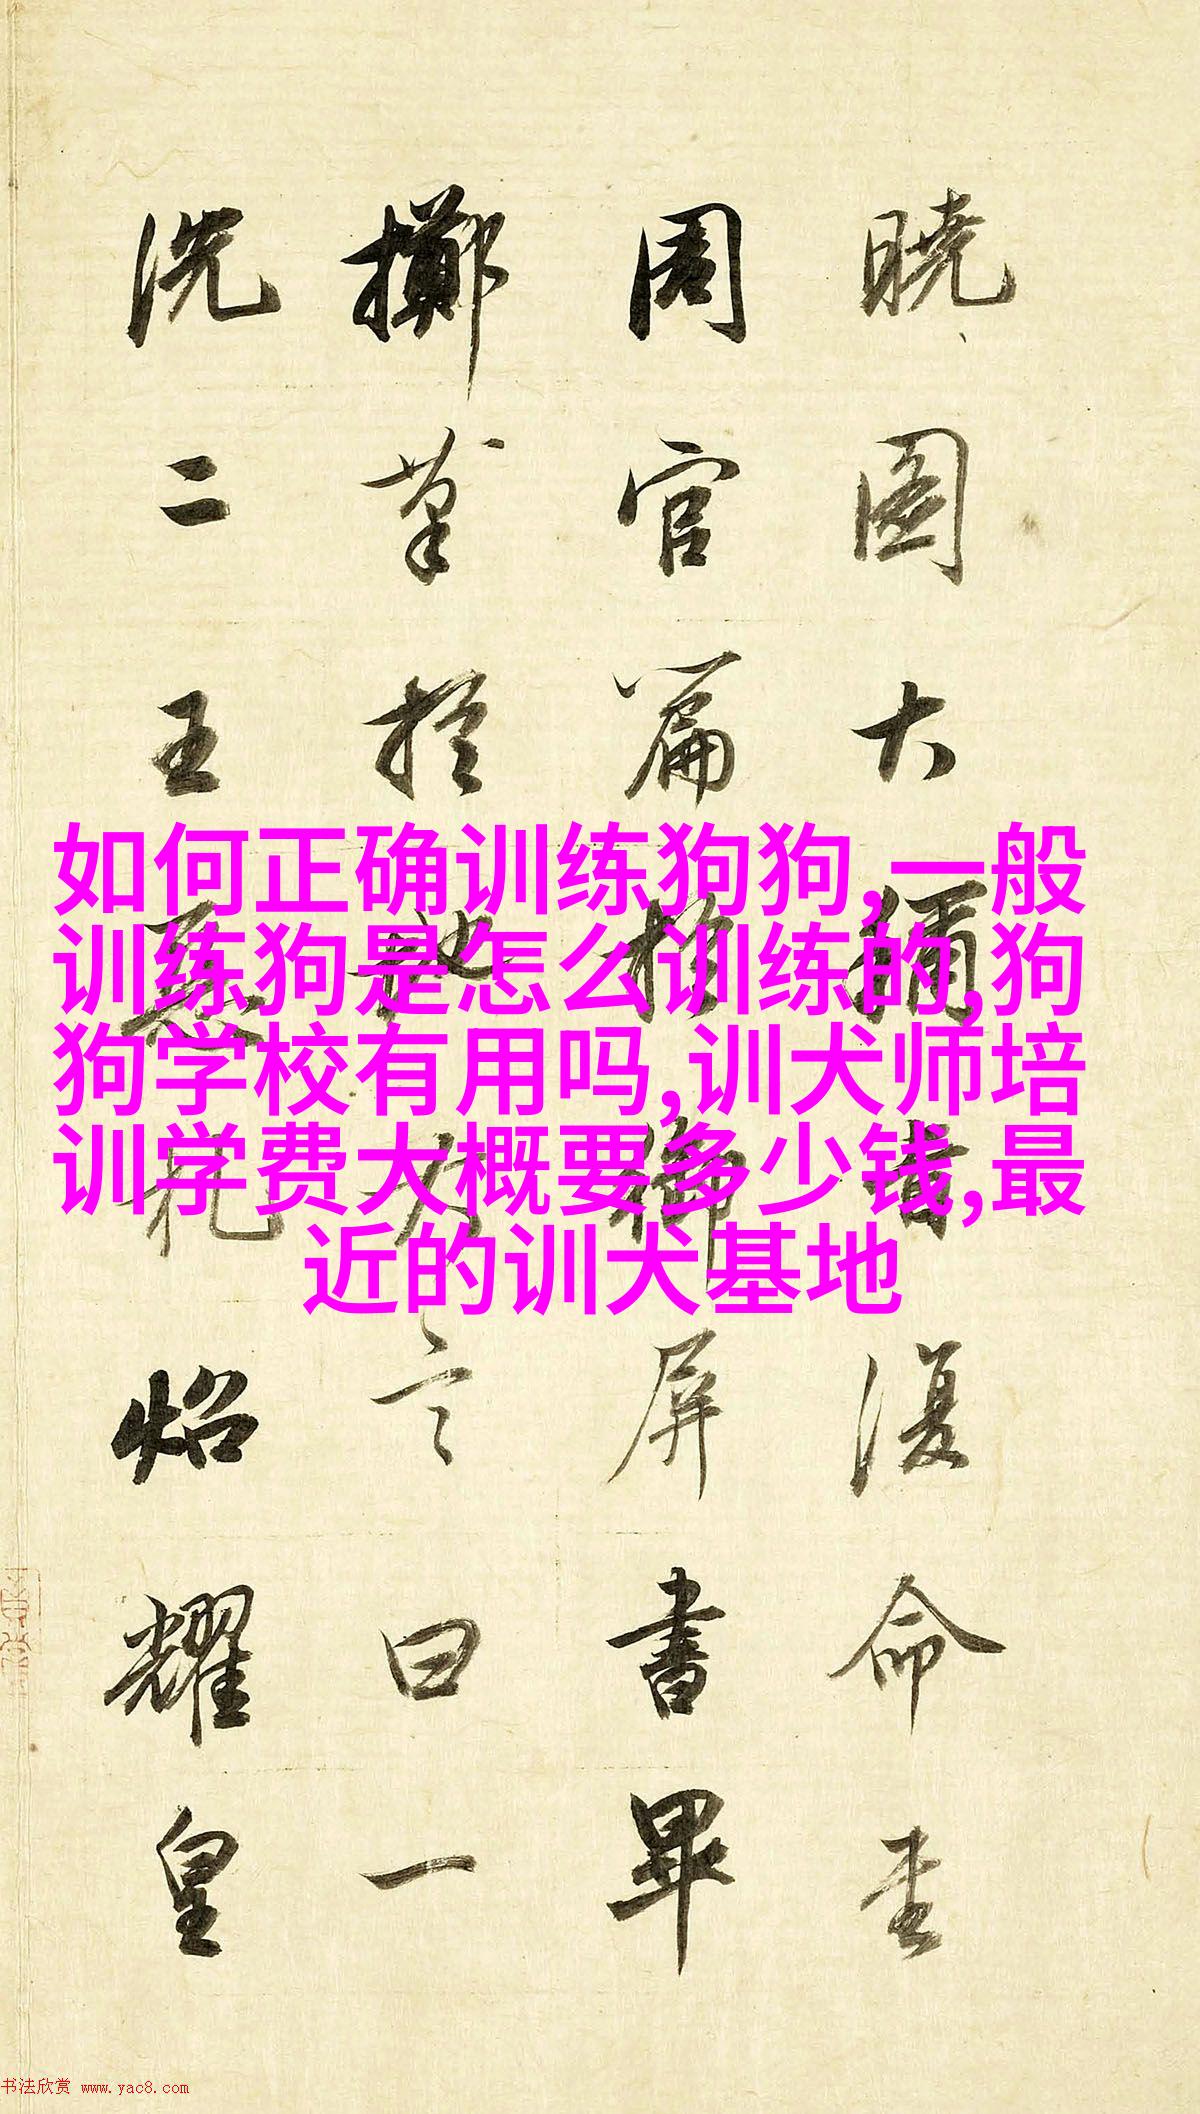 曉圖大稱旨復命書
周官篇於御屏書畢
擲筆於地大言曰一
洗二王惡札炤耀皇
如何正确训练狗狗,一般
训练狗是怎么训练的,狗
狗学校有用吗,训犬师培
训学费大概要多少钱,最
近的训犬基地
书法欣赏 www.yac8.com